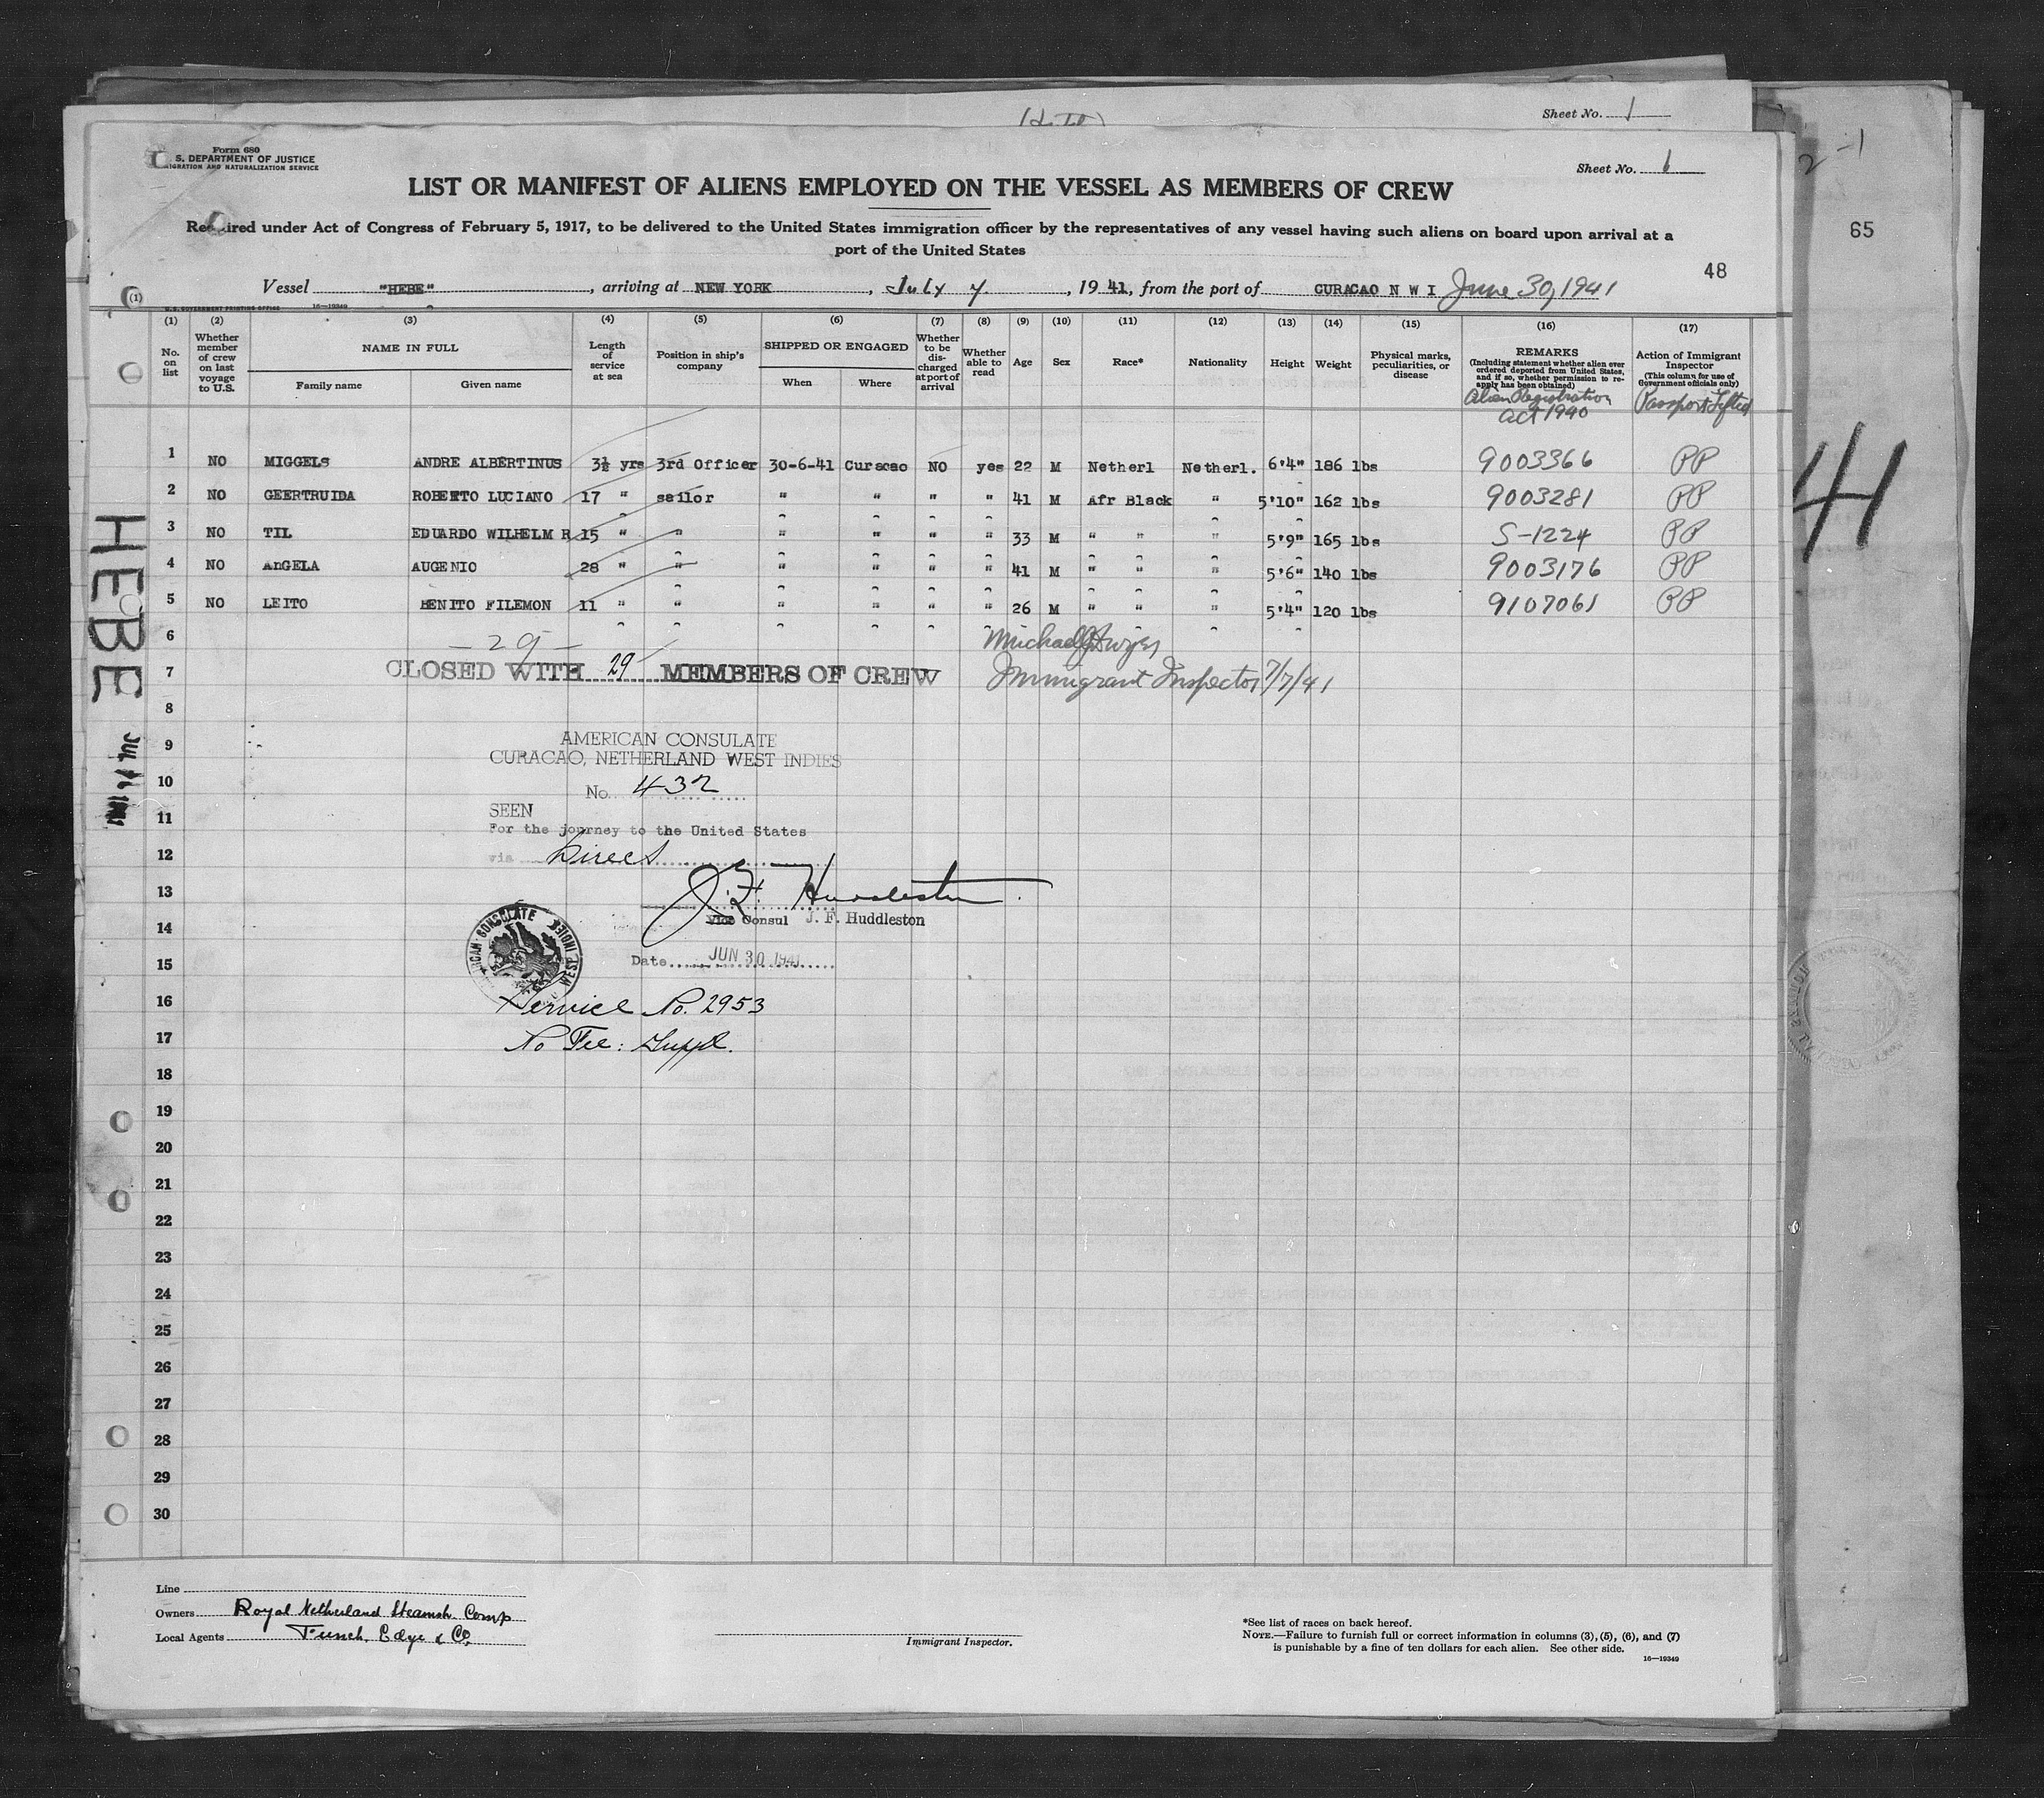 Sheet No. 1
2-1
65
Form 680
S. DEPARTMENT OF JUSTICE
IGRATION AND NATURALIZATION SERVICE
Sheet No. 6
LIST OR MANIFEST OF ALIENS EMPLOYED ON THE VESSEL AS MEMBERS OF CREW
Required under Act of Congress of February 5, 1917, to be delivered to the United States immigration officer by the representatives of any vessel having such aliens on board upon arrival at a
port of the United States
48
Vessel "HEBE", arriving at NEW YORK, July 7, 1941, from the port of CURACAO N W I June 30, 1941
(1)
U. S. GOVERNMENT PRINTING OFFICE 16—19349
(1) (2) (3) (4) (5) (6) (7) (8) (9) (10) (11) (12) (13) (14) (15) (16) (17)
No. on list
Whether member of crew on last voyage to U.S.
NAME IN FULL
Family name Given name
Length of service at sea
Position in ship's company
SHIPPED OR ENGAGED
When Where
Whether to be discharged at port of arrival
Whether able to read
Age Sex Race* Nationality Height Weight
Physical marks, peculiarities, or disease
REMARKS
(Including statement whether alien ever ordered deported from United States, and if so, whether permission to reapply has been obtained)
Alien Registration
Act 1940
Action of Immigrant Inspector
(This column for use of Government officials only)
Passport Lifted
1 NO MIGGELS ANDRE ALBERTINUS 3½ yrs 3rd Officer 30-6-41 Curacao NO yes 22 M Netherl Netherl. 6'4" 186 lbs 9003366 PP
2 NO GEERTRUIDA ROBERTO LUCIANO 17 " sailor " " " " 41 M Afr Black " 5'10" 162 lbs 9003281 PP
3 NO TIL EDUARDO WILHELM R 15 " " " " " " 33 M " " " 5'9" 165 lbs S-1224 PP
4 NO AnGELA AUGENIO 28 " " " " " " 41 M " " " 5'6" 140 lbs 9003176 PP
5 NO LEITO BENITO FILEMON 11 " " " " " " 26 M " " " 5'4" 120 lbs 9107061 PP
6
- 29 -
7
CLOSED WITH 29 MEMBERS OF CREW
Immigrant Inspector 7/7/41
41
HEBE
8
9
AMERICAN CONSULATE
CURACAO, NETHERLAND WEST INDIES
10
No. 432
11
SEEN
For the journey to the United States
12
via Direct
13
J. F. Huddleston
14
Vice Consul J. F. Huddleston
15
Date JUN 30 1941
16
Service No. 2953
17
No Fee: Suppl.
18
19
20
21
22
23
24
25
26
27
28
29
30
Line
Owners Royal Netherland Steamsh. Comp
Local Agents Funch, Edye & Co.
Immigrant Inspector.
*See list of races on back hereof.
NOTE.—Failure to furnish full or correct information in columns (3), (5), (6), and (7)
is punishable by a fine of ten dollars for each alien. See other side.
16—19349